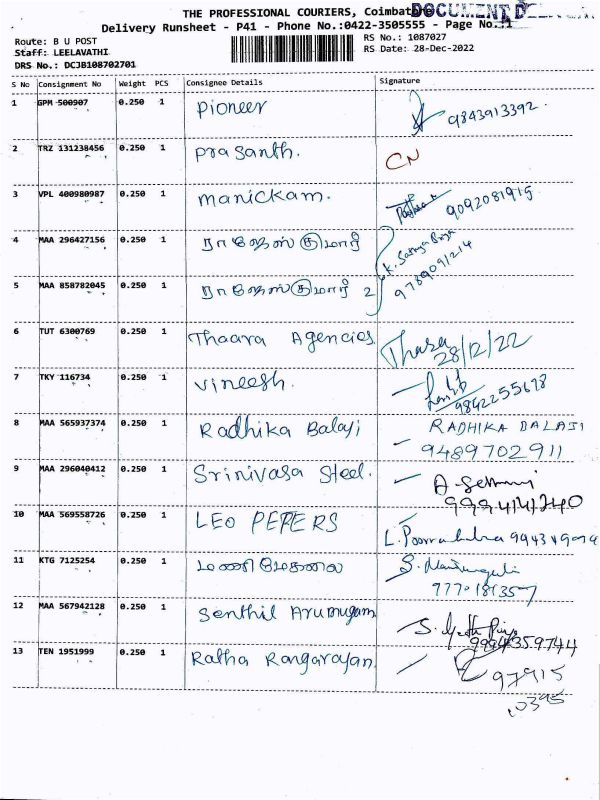 THE PROFESSIONAL COURIERS, Coimbatore
DOCUMENT
Delivery Runsheet - P41 - Phone No.:0422-3505555 - Page No.:1
Route: B U POST
RS No.: 1087027
Staff: LEELAVATHI
RS Date: 28-Dec-2022
DRS No.: DCJB108702701
S No Consignment No Weight PCS Consignee Details Signature
1 GPM 500907 0.250 1 Pioneer 9843913392
2 TRZ 131238456 0.250 1 Prasanth. CN
3 VPL 400980987 0.250 1 manickam. 9092081915
4 MAA 296427156 0.250 1 ராஜேஸ் குமார் K. Sathya Priya
5 MAA 858782045 0.250 1 ராஜேஸ் குமார் 2 9789091214
6 TUT 6300769 0.250 1 Thaara Agencies Thara 28/12/22
7 TKY 116734 0.250 1 vineesh. 9842255678
8 MAA 565937374 0.250 1 Radhika Balaji RADHIKA BALAJI
9489702911
9 MAA 296040412 0.250 1 Srinivasa Steel.
9994141240
10 MAA 569558726 0.250 1 LEO PEPERS
11 KTG 7125254 0.250 1 மணிமேகலை
12 MAA 567942128 0.250 1 Senthil Arumugam
9994359744
13 TEN 1951999 0.250 1 Ratha Rangarajan 97915
10395